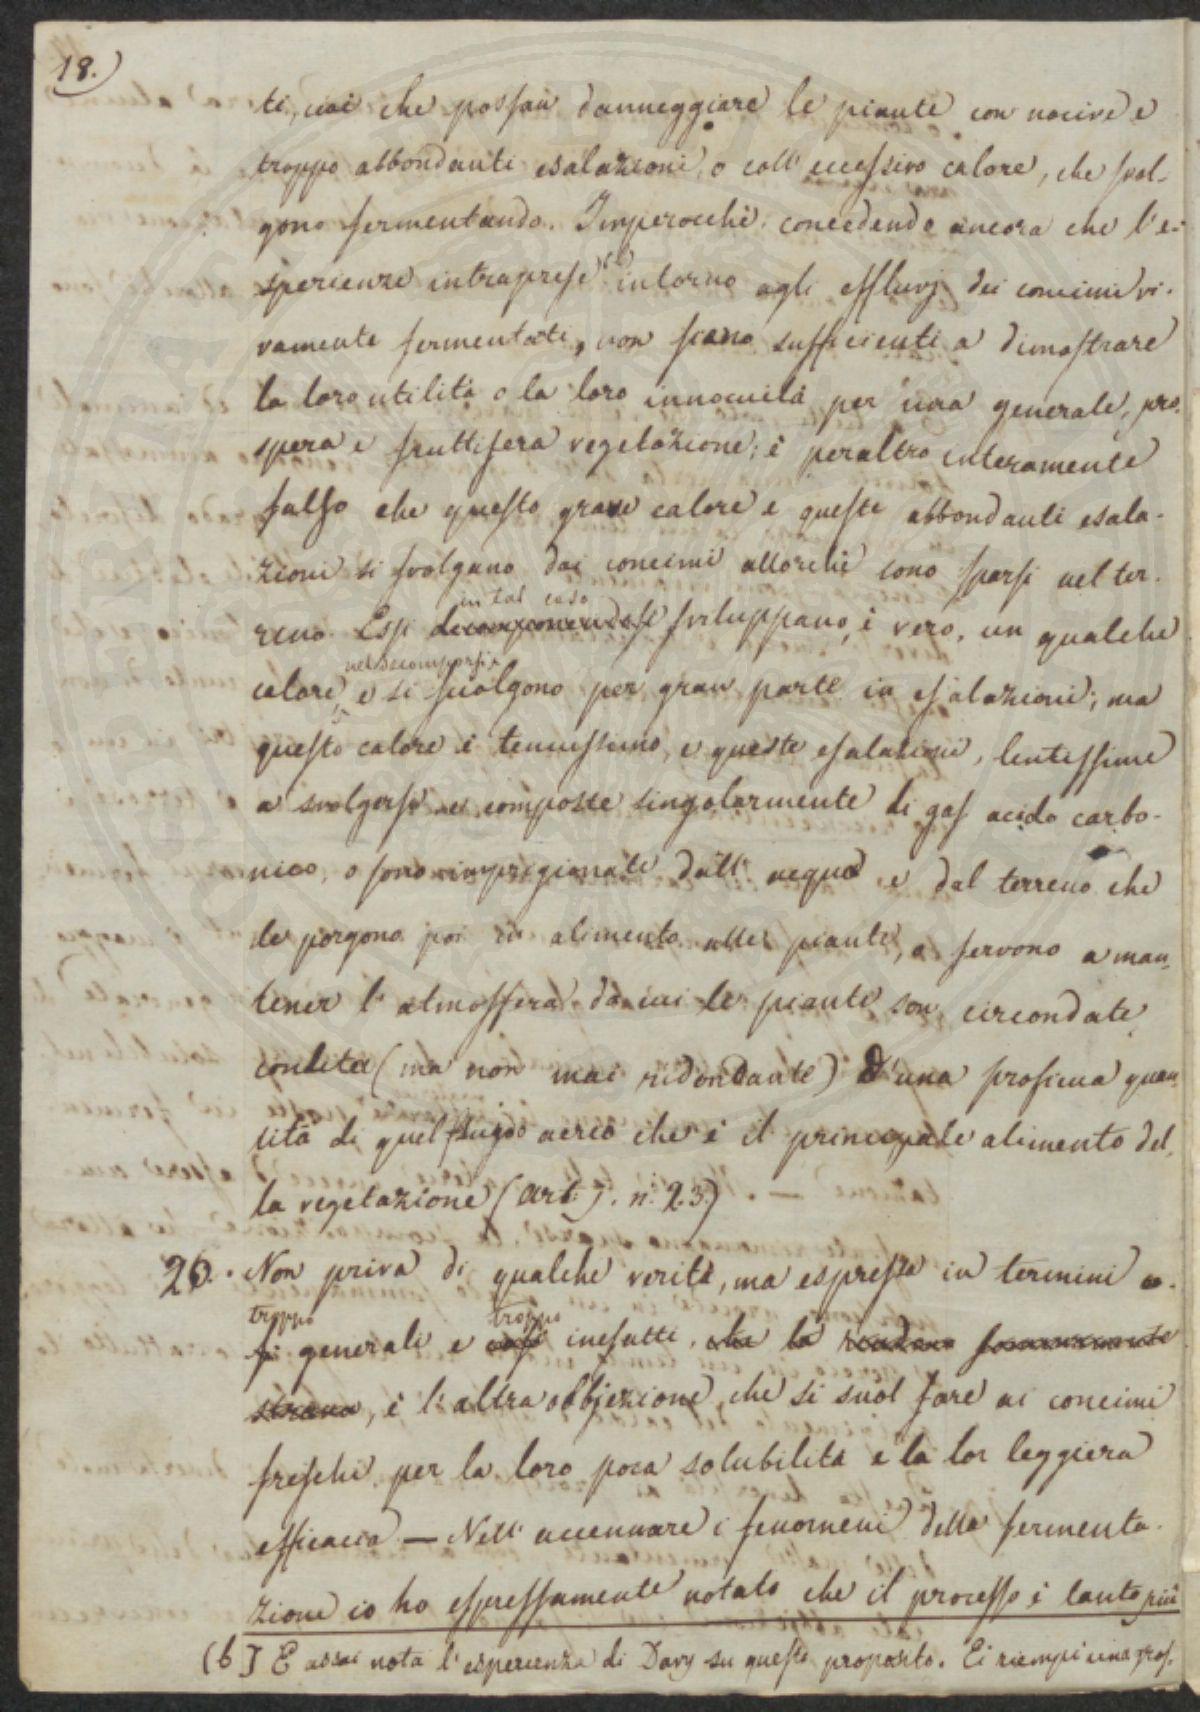 18.
ti, cui che possan danneggiare le piante con nocive e
troppo abbondanti esalazioni, o coll'eccessivo calore, che svol-
gono fermentando. Imperocchè concedendo ancora che l'e-
sperienze intraprese (b) intorno agli effluvj dei concimi vi-
vamente fermentati, non siano sufficienti a dimostrare
la loro utilità o la loro innocuità per una generale, pro-
spera e fruttifera vegetazione; è peraltro interamente
falso che questo grave calore e queste abbondanti esala-
zioni si svolgano dai concimi allorchè sono sparsi nel ter-
in tal caso
reno. Essi decomponendosi sviluppano, è vero, un qualche
nel scomporsi
calore, e si sciolgono per gran parte in esalazioni; ma
questo calore è tenuissimo, e queste esalazioni, lentissime
a svolgersi e composte singolarmente di gas acido carbo-
nico, o sono imprigionate dall'acqua e dal terreno che
le porgono poi in alimento alle piante, o servono a man-
tener l'atmosfera da cui le piante son circondate
condita (ma non mai ridondante) d'una prossima quan-
tità di quel fluido aereo che è il principale alimento del-
la vegetazione (Art. . n. 2.3)
26. Non priva di qualche verità, ma espressa in termini
troppo troppo
si generali e così inesatti, che la rendono sommamente
strana, è l'altra obbjezione, che si suol fare ai concimi
freschi per la loro poca solubilità e la lor leggiera
efficacia — Nell'accennare i fenomeni della fermenta-
zione io ho espressamente notato che il processo è tanto più
(b) E assai nota l'esperienza di Davy su questo proposito. Ei riempì una gros-